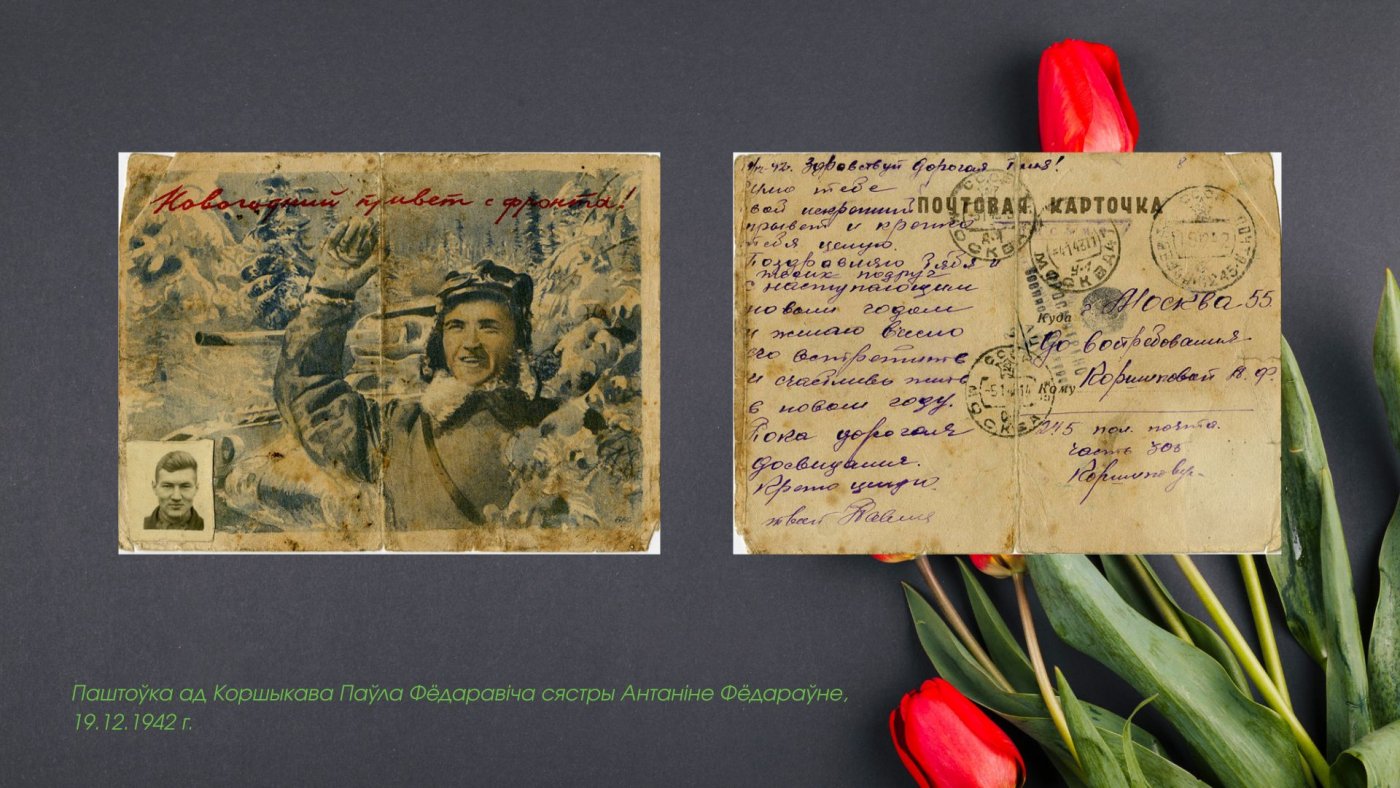 Новогодний привет с фронта!
Здравствуй дорогая Тоня!
Шлю тебе
свой искренний
привет и крепко
тебя целую.
Поздравляю Тебя и
твоих подруг
с наступающим
новым годом
и желаю весело
его встретить
и счастливо жить
в новом году.
Пока дорогая
досвидания.
Крепко целую.
твой Павел
ПОЧТОВАЯ КАРТОЧКА
Куда г. Москва 55
До востребования
Кому Коршиковой А. Ф.
245 пол. почта.
часть 305
Коршиков
Паштоўка ад Коршыкава Паўла Фёдаравіча сястры Антаніне Фёдараўне,
19.12.1942 г.